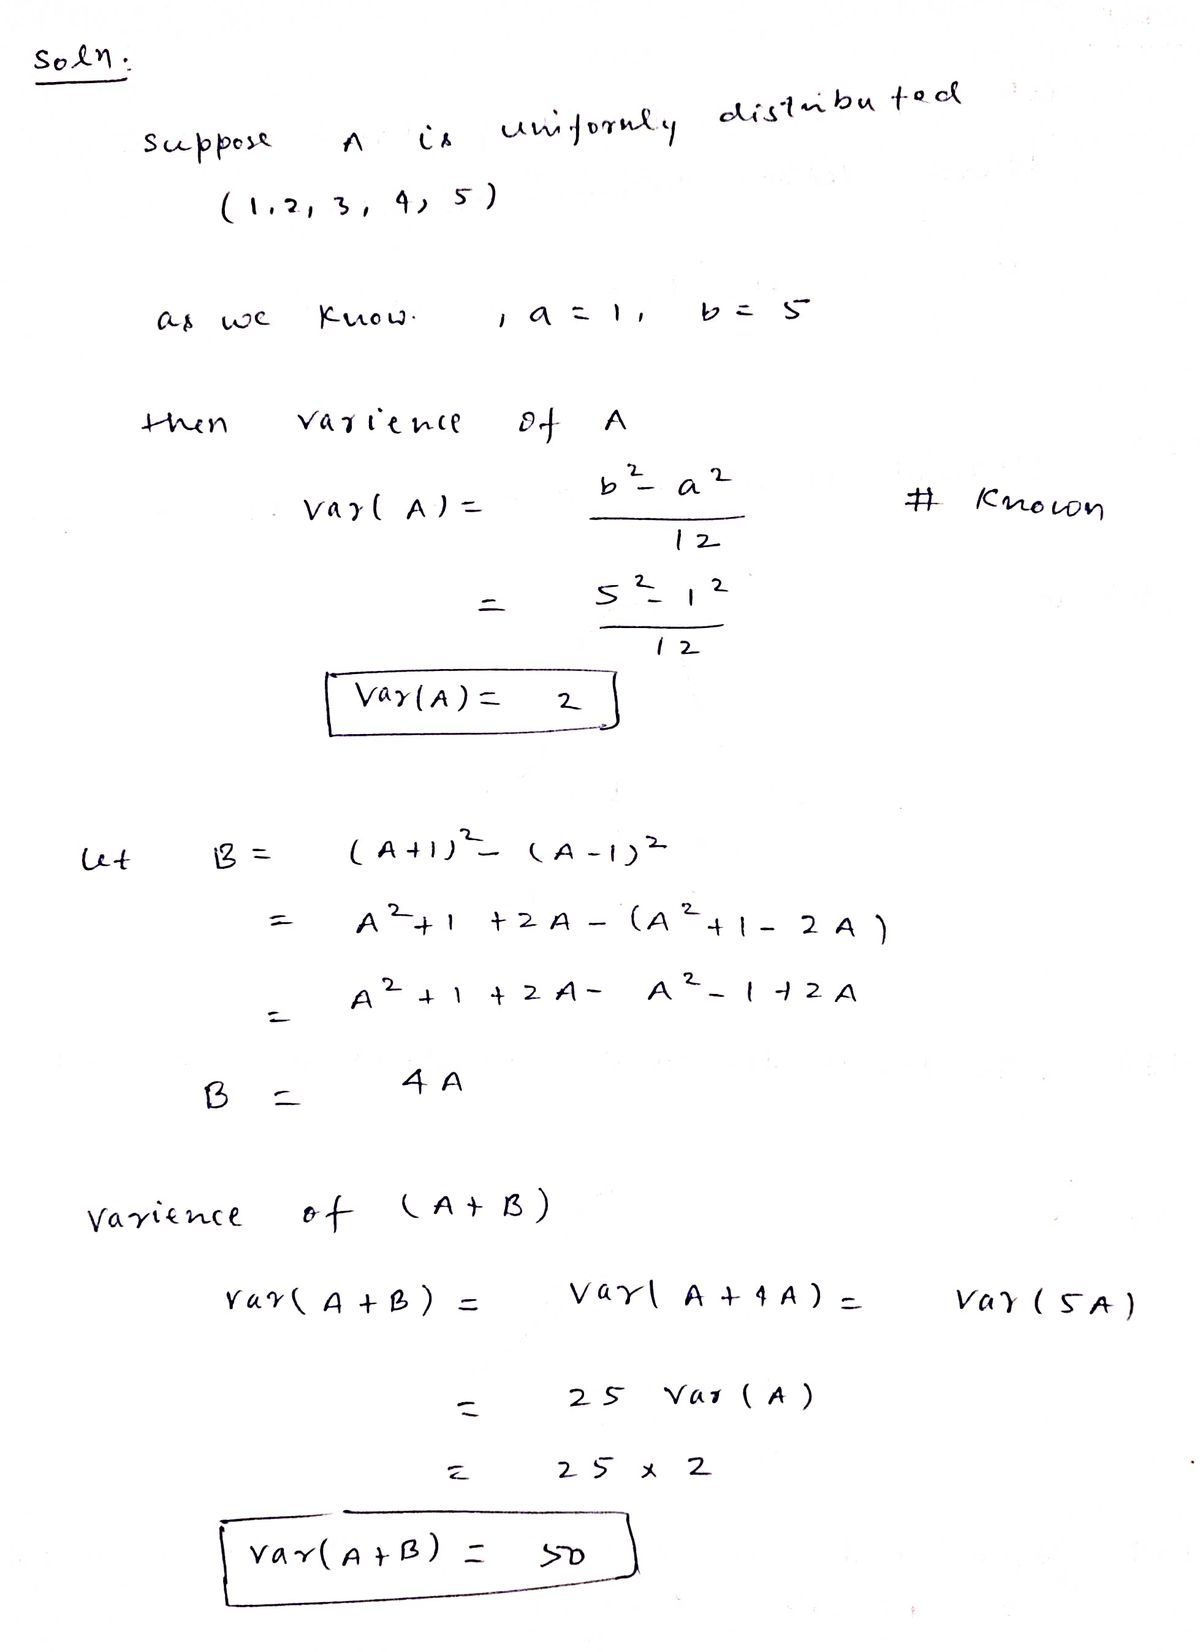 Soln:
Suppose A is uniformly distributed
(1,2, 3, 4, 5)
as we know. , a = 1, b = 5
then varience of A
var(A) = b² - a² / 12 # Known
= 5² - 1² / 12
Var(A) = 2
let B = (A+1)² - (A-1)²
= A² + 1 + 2A - (A² + 1 - 2A)
= A² + 1 + 2A - A² - 1 + 2A
B = 4A
Varience of (A + B)
var(A + B) = Var(A + 4A) = Var(5A)
= 25 Var(A)
= 25 x 2
var(A + B) = 50